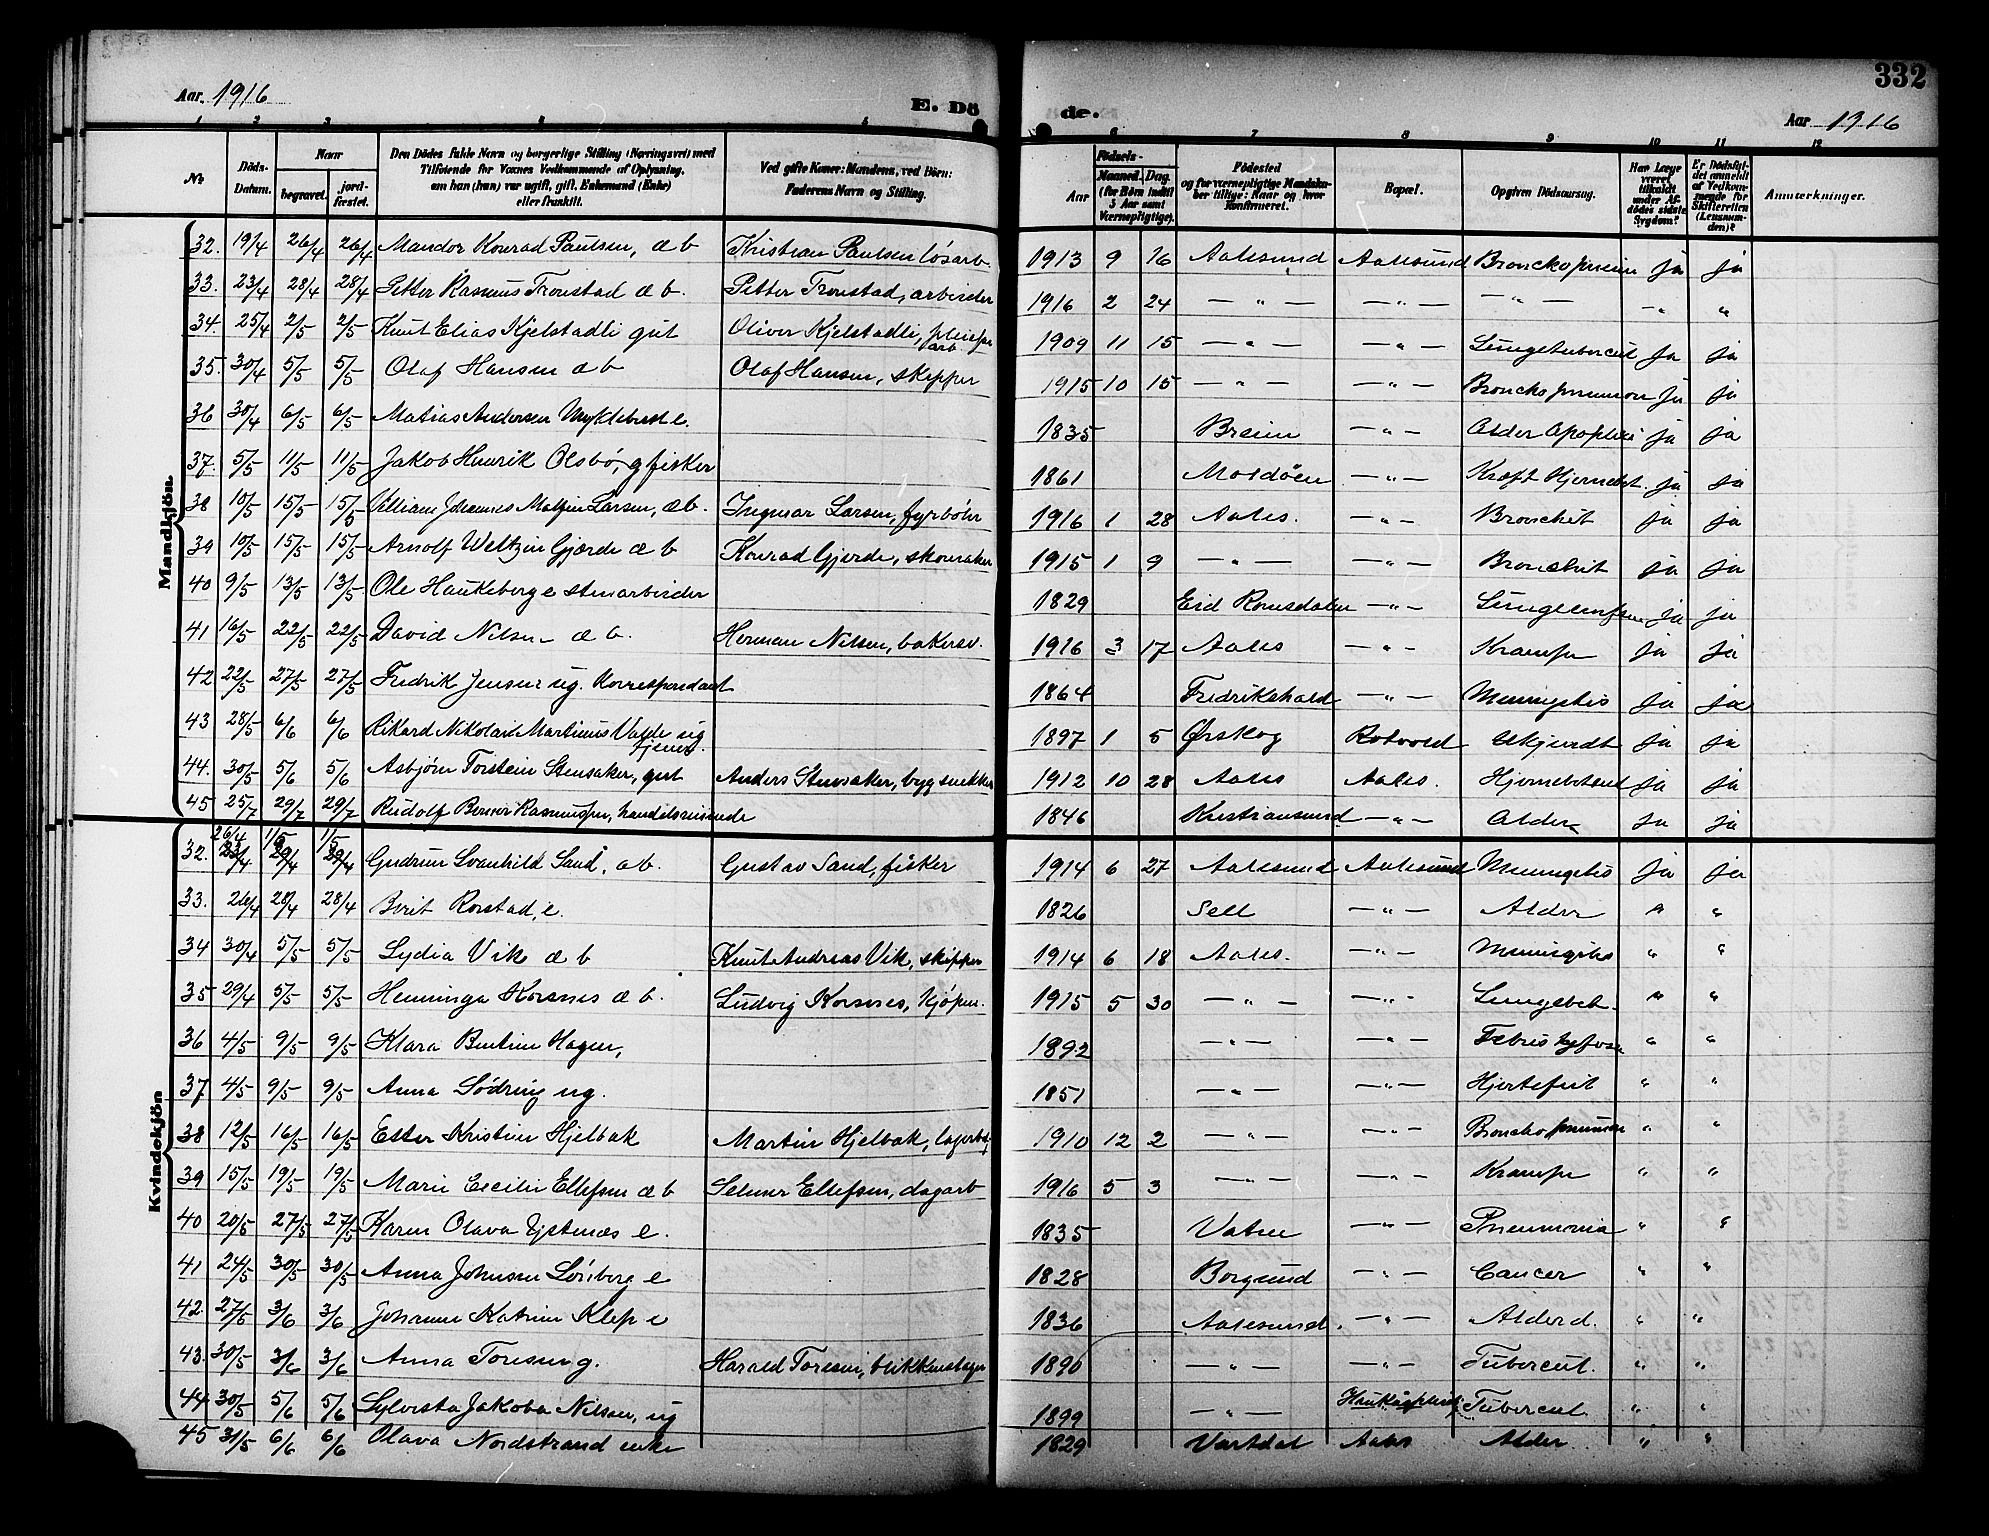 332
Aar. 1916
E. Dö de.
Aar 1916
1 2 3 4 5 6 7 8 9 10 11 12
№
Döds-Datum.
Naar begravet. jordfæstet.
Den Dödes fulde Navn og borgerlige Stilling (Næringsvei) med Tilföiende for Voxnes Vedkommende af Oplysning, om han (hun) var ugift, gift, Enkemand (Enke) eller fraskilt.
Ved gifte Koner: Mandens, ved Börn: Faderens Navn og Stilling.
Födsels- Aar Maaned. Dag. (for Börn indtil 5 Aar samt Værnepligtige).
Födested og for værnepligtige Mandskaber tillige: Naar og hvor konfirmeret.
Bopæl.
Opgiven Dödsaarsag.
Har Læge været tilkaldt under Afdödes sidste Sygdom?
Er Dödsfaldet anmeldt af Vedkommende for Skifteretten (Lensmanden)?
Anmærkninger.
Mandkjön
32. 19/4 26/4 26/4 Mandor Konrad Paulsen, æ b Kristian Paulsen løsarb. 1913 9 16 Aalesund Aalesund ja ja
33. 23/4 28/4 28/4 Petter Rasmus Tronstad æ b. Petter Tronstad, arbeider 1916 2 24 — " — — " — — " — " "
34. 25/4 2/5 2/5 Knut Elias Kjelstadli gut Oliver Kjelstadli, arb. 1909 11 15 — " — — " — Lungetubercul ja ja
35. 30/4 5/5 5/5 Olaf Hansen æ b Olaf Hansen, skipper 1915 10 15 — " — — " — ja ja
36 30/4 6/5 6/5 Matias Andersen Myklebust e. 1835 Breim — " — Alder ja ja
37. 5/5 11/5 11/5 Jakob Henrik Olsbø, g fisker 1861 Moldöen — " — Kræft ja ja
38 10/5 15/5 15/5 Johannes Larsen, æ b. Ingmar Larsen, fyrbøter 1916 1 28 Aales. — " — Bronchit ja ja
39 10/5 15/5 15/5 Arnolf Weltzin Gjærde æ b Konrad Gjærde, skomaker 1915 1 9 — " — — " — Bronchit ja ja
40 9/5 13/5 13/5 Ole Haukeberg e stenarbeider 1829 Eid Romsdalen — " — ja ja
41 16/5 22/5 22/5 David Nilsen æ b. Herman Nilsen, bakersv. 1916 3 17 Aales — " — Krampe ja ja
42 22/5 27/5 27/5 Fredrik Jensen ug. Korrespondent 1864 Fredrikshald — " — Meningitis ja ja
43 28/5 6/6 6/6 Rikard Nikolai Martinus Valde ug 1897 1 5 Ørskog Rotvold Ukjendt ja ja
44. 30/5 5/6 5/6 Asbjørn Torstein Stensaker, gut Anders Stensaker, bygsnekker 1912 10 28 Aales Aales. ja ja
45 25/7 29/7 29/7 Rudolf Rasmussen, handelsreisende 1846 Kristiansund — " — Alder ja ja
Kvindekjön
32. 26/4 23/4 1/5 29/4 1/5 29/4 Gudrun Svanhild Sand, æ b. Gustav Sand, fisker 1914 6 27 Aalesund Aalesund Meningitis ja ja
33. 26/4 28/4 28/4 Berit Rorstad, e. 1826 Sell — " — Alder " "
34 30/4 5/5 5/5 Lydia Vik æ b Knut Andreas Vik, skipper 1914 6 18 Aales. — " — Meningitis " "
35 29/4 5/5 5/5 Henninga Korsnes æ b. Ludvig Korsnes, kjøpm. 1915 5 30 — " — — " — Lungebet. " "
36 4/5 9/5 9/5 Klara Bentine Hagen, 1892 — " — — " — Febris " "
37 4/5 9/5 9/5 Anna Lödring ug. 1851 — " — — " — Hjertefeil " "
38 12/5 16/5 16/5 Ester Kristine Hjelbak Martin Hjelbak, 1910 12 2 — " — — " — " "
39 15/5 19/5 19/5 Marie Cecilie Ellefsen æ b Selmer Ellefsen, dagarb 1916 5 3 — " — — " — Krampe " "
40 20/5 27/5 27/5 Karen Olava Gjstenæs e. 1835 Vatne — " — Pneumonia " "
41 24/5 30/5 30/5 Anna Johnsen e 1828 Borgund — " — Cancer " "
42. 27/5 3/6 3/6 Johanne Katrine Klep e 1836 Aalesund. — " — Alderd. " "
43. 30/5 3/6 3/6 Anna Toresen g. Harald Toresen, blikkenslager 1890 — " — — " — Tubercul. " "
44 30/5 5/6 5/6 Sylvesta Jakoba Nilsen, ug 1899 — " — Tubercul. " "
45 31/5 6/6 6/6 Olava Nordstrand enke 1829 Vartdal Aales Alder " "